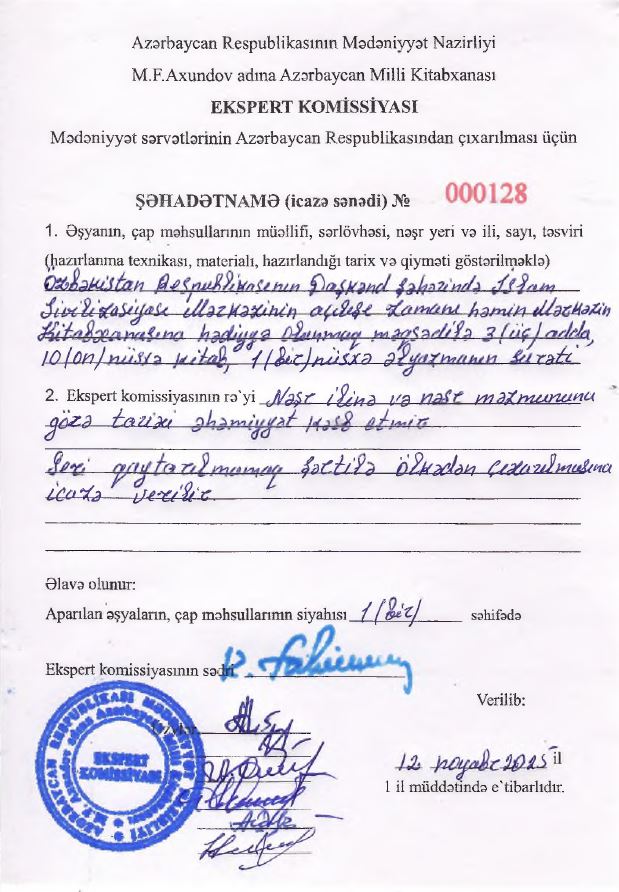 Azərbaycan Respublikasının Mədəniyyət Nazirliyi
M.F.Axundov adına Azərbaycan Milli Kitabxanası
EKSPERT KOMİSSİYASI
Mədəniyyət sərvətlərinin Azərbaycan Respublikasından çıxarılması üçün
ŞƏHADƏTNAMƏ (icazə sənədi) № 000128
1. Əşyanın, çap məhsullarının müəllifi, sərlövhəsi, nəşr yeri və ili, sayı, təsviri
(hazırlanma texnikası, materialı, hazırlandığı tarix və qiyməti göstərilməklə)
Özbəkistan Respublikasının Daşkənd şəhərində İslam
Sivilizasiyası Mərkəzinin açılışı zamanı həmin Mərkəzin
Kitabxanasına hədiyyə olunmaq məqsədilə 3 (üç) adda,
10 (on) nüsxə kitab, 1 (bir) nüsxə əlyazmanın surəti
2. Ekspert komissiyasının rə`yi Nəşr ilinə və nəşr məzmununa
görə tarixi əhəmiyyət kəsb etmir
Geri qaytarılmamaq şərtilə ölkədən çıxarılmasına
icazə verilir.
Əlavə olunur:
Aparılan əşyaların, çap məhsullarının siyahısı 1 (bir) səhifədə
Ekspert komissiyasının sədri
Verilib:
Üzvlər
12 noyabr 2025 il
1 il müddətində e`tibarlıdır.
AZƏRBAYCAN RESPUBLİKASI MƏDƏNİYYƏT NAZİRLİYİ
M.F. Axundov adına Azərbaycan Milli Kitabxanası
EKSPERT
KOMİSSİYASI